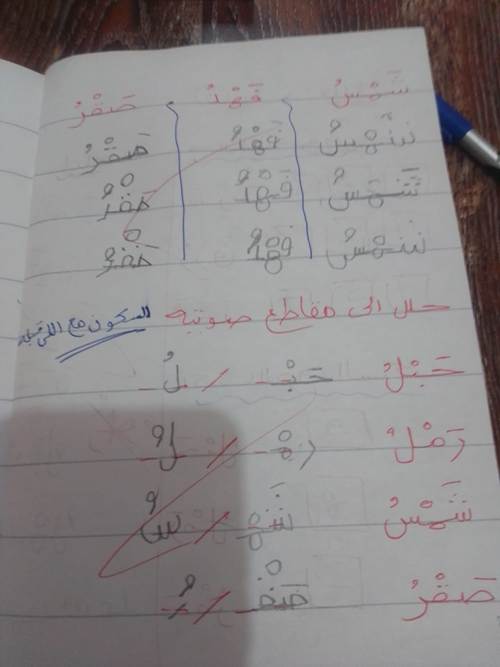 شَمْسُ فَهْدُ صَقْرُ
شَمْسُ فَهْدُ صَقْرُ
شَمْسُ فَهْدُ صَقْرُ
شَمْسُ فَهْدُ صَقْرُ
حلل الى مقاطع صوتيه السكون مع اللي قبله
حَبْلُ حَبْـ / لُ
رَمْلُ رَمْـ / لُ
شَمْسُ شَمْـ / سُ
صَقْرُ صَقْـ / رُ